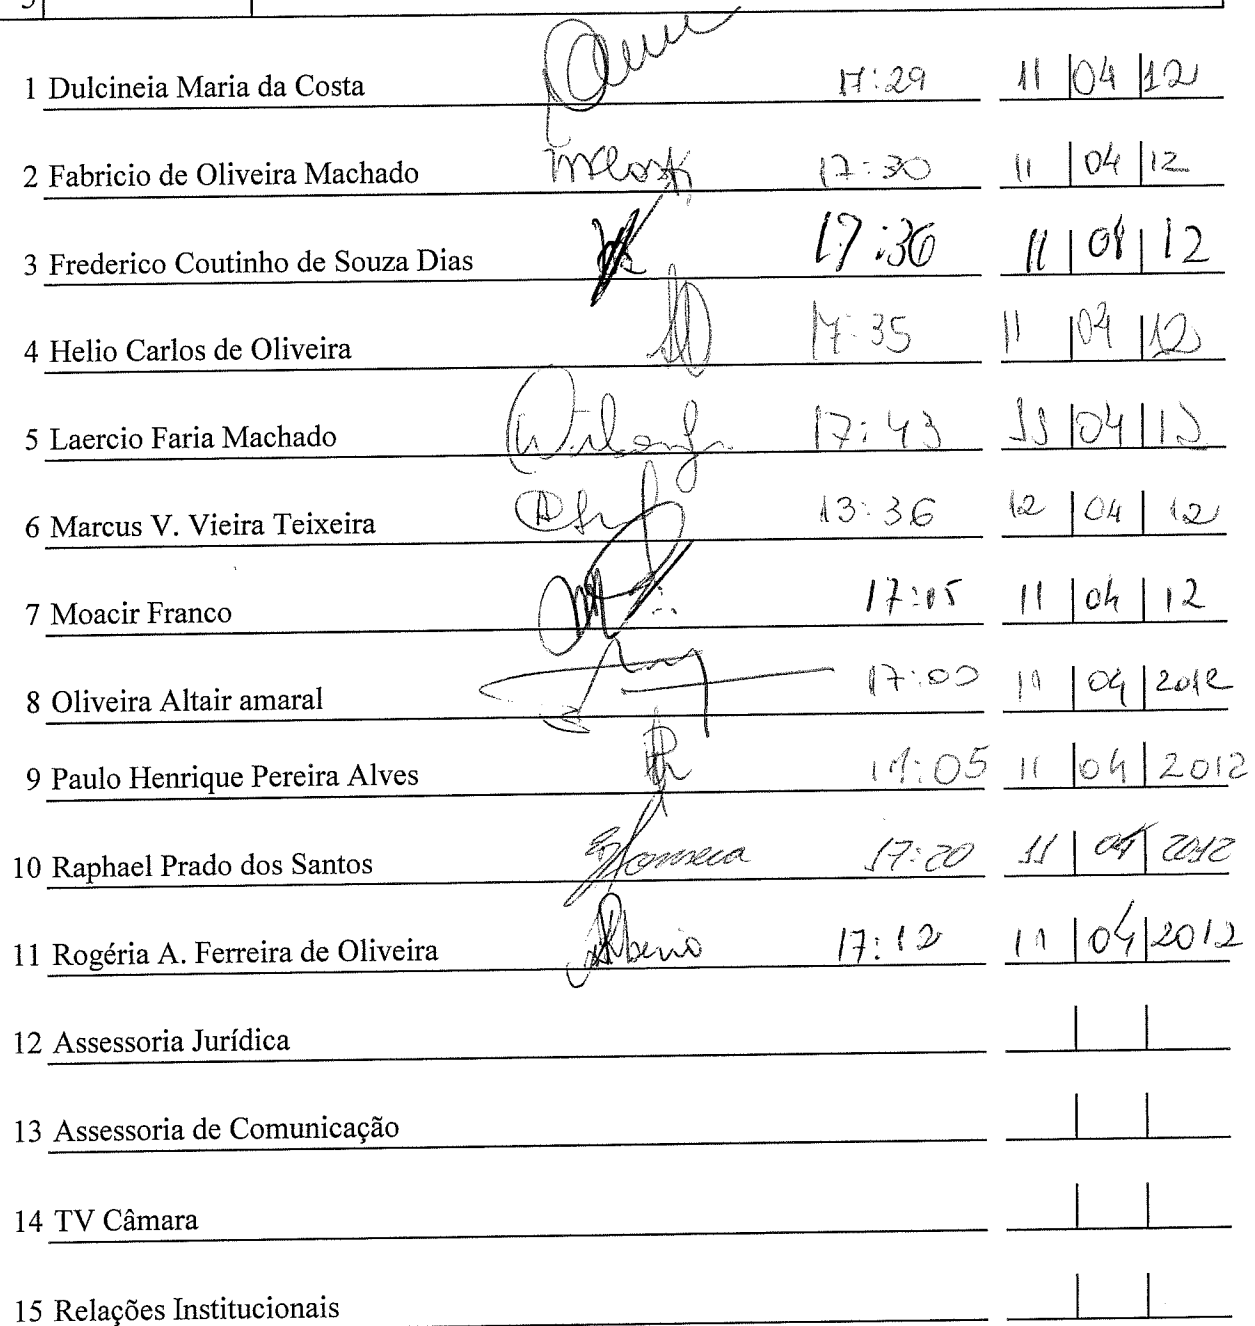 1 Dulcineia Maria da Costa 17:29 11 | 04 | 12
2 Fabricio de Oliveira Machado 17:30 11 | 04 | 12
3 Frederico Coutinho de Souza Dias 17:36 11 | 04 | 12
4 Helio Carlos de Oliveira 17:35 11 | 04 | 12
5 Laercio Faria Machado 17:43 11 | 04 | 12
6 Marcus V. Vieira Teixeira 13:36 12 | 04 | 12
7 Moacir Franco 17:15 11 | 04 | 12
8 Oliveira Altair amaral 17:00 11 | 04 | 2012
9 Paulo Henrique Pereira Alves 11 | 04 | 2012
10 Raphael Prado dos Santos 17:20 11 | 04 | 2012
11 Rogéria A. Ferreira de Oliveira 17:12 11 | 04 | 2012
12 Assessoria Jurídica
13 Assessoria de Comunicação
14 TV Câmara
15 Relações Institucionais